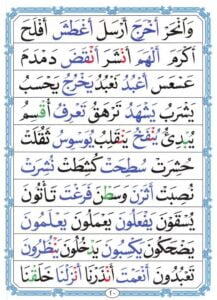 وَانْحَرْ أَخْرَجَ أَرْسَلَ أَغْطَشَ أَفْلَحَ
أَكْرَمَ أَلْهَمَ أَنْشَرَ أَنْقَضَ دَمْدَمَ
عَسْعَسَ أَعْبُدُ نَعْبُدُ يَخْرُجُ يَحْسَبُ
يَشْرَبُ يَشْهَدُ تَرْهَقُ تَعْرِفُ أُقْسِمُ
يُبْدِئُ تُفْلِحُ يَنْقَلِبُ يُوَسْوِسُ ثَقُلَتْ
حُشِرَتْ سُطِحَتْ كُشِطَتْ نُشِرَتْ
نُصِبَتْ أَثَرْنَ وَسَطْنَ فَرَغْتَ تَأْتُونَ
يُسْقَوْنَ يَفْعَلُونَ يَعْمَلُونَ يَعْلَمُونَ
يَضْحَكُونَ يَكْسِبُونَ يَدْخُلُونَ يَنْظُرُونَ
تَعْبُدُونَ أَنْعَمْتَ أَنْذَرْنَا أَنْزَلْنَا خَلَقْنَا